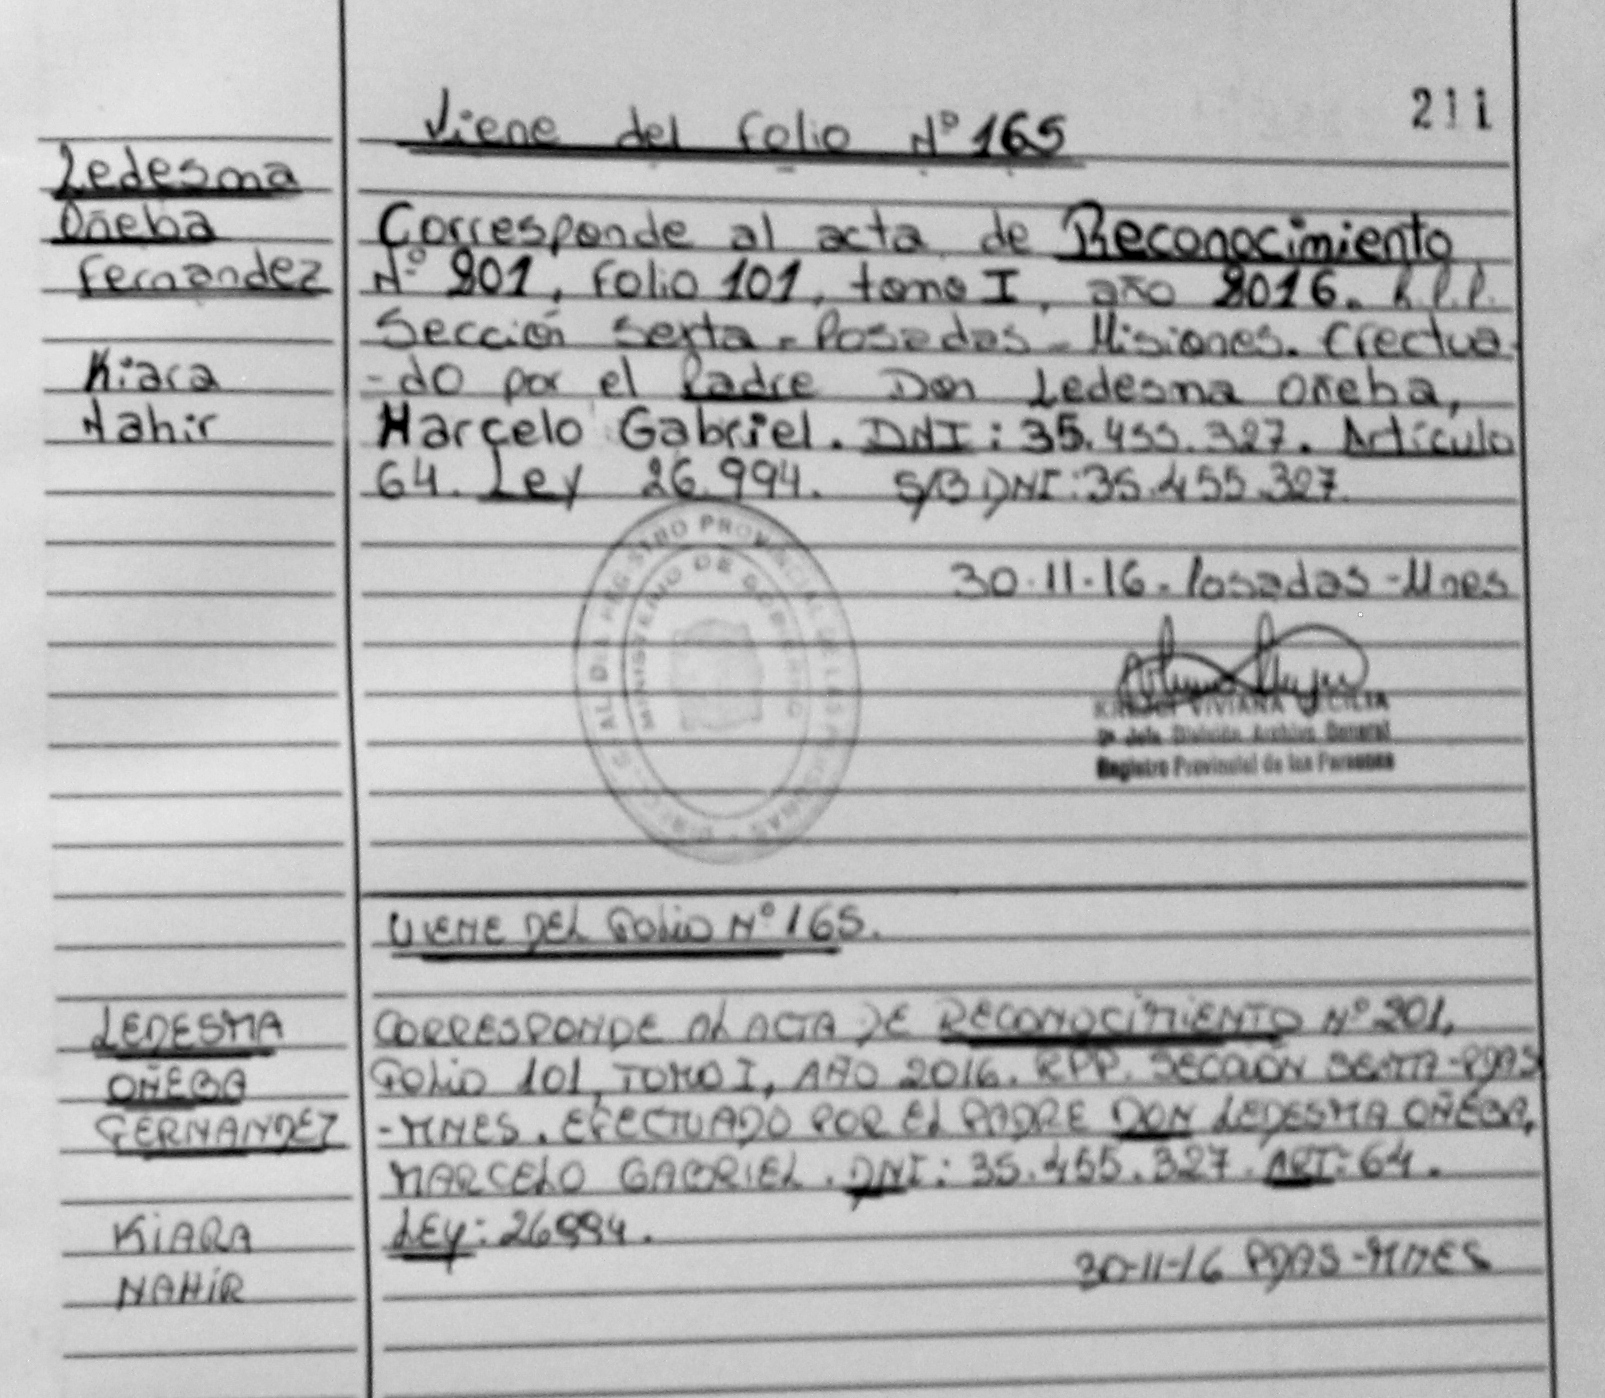 211
Viene del folio Nº 165
Ledesma
Oñeba
Fernandez
Kiara
Nahir
Corresponde al acta de Reconocimiento
Nº 201, folio 101, tomo I, año 2016. R.P.P.
Sección Sexta - Posadas - Misiones. Efectua
-do por el Padre Don Ledesma Oñeba,
Marcelo Gabriel. DNI: 35.455.327. Artículo
64. Ley 26.994. S/B DNI: 35.455.327.
REGISTRO PROVINCIAL DE LAS PERSONAS
MINISTERIO DE GOBIERNO
30-11-16 - Posadas - Mnes
VIVIANA CECILIA
División Archivo General
Registro Provincial de las Personas
VIENE DEL FOLIO Nº 165.
LEDESMA
OÑEBA
FERNANDEZ
KIARA
NAHIR
CORRESPONDE AL ACTA DE RECONOCIMIENTO Nº 201,
FOLIO 101, TOMO I, AÑO 2016. RPP. SECCIÓN SEXTA-PDAS
-MNES. EFECTUADO POR EL PADRE DON LEDESMA OÑEBA,
MARCELO GABRIEL. DNI: 35.455.327. ART: 64.
LEY: 26994.
30-11-16 PDAS-MNES